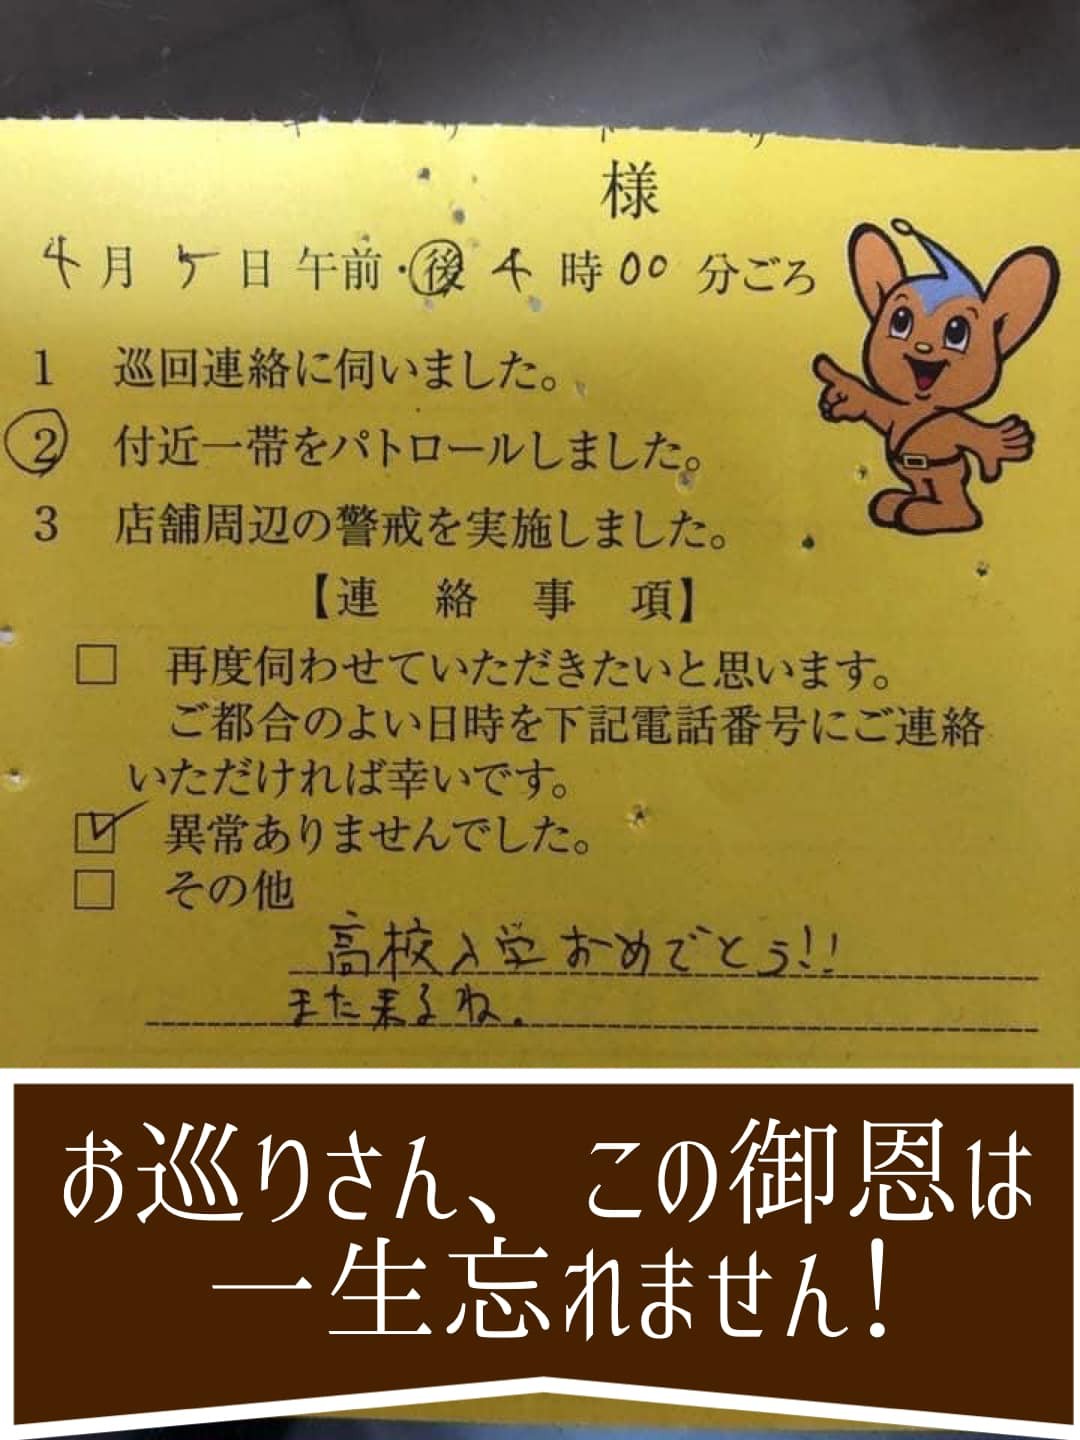 キ リ ト リ
様
4月5日午前・後4時00分ごろ
1 巡回連絡に伺いました。
2 付近一帯をパトロールしました。
3 店舗周辺の警戒を実施しました。
【連絡事項】
□ 再度伺わせていただきたいと思います。
ご都合のよい日時を下記電話番号にご連絡
いただければ幸いです。
☑ 異常ありませんでした。
□ その他
高校入学おめでとう!!
また来るね.
お巡りさん、この御恩は
一生忘れません!